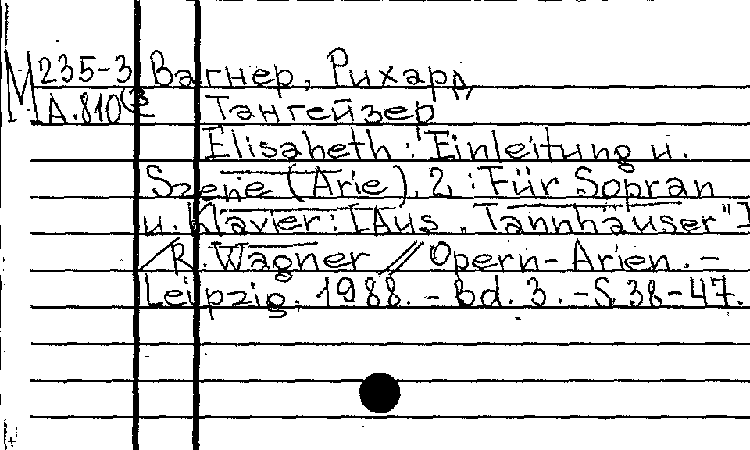 М 235-3 Вагнер, Рихард
А.810(3 Тангейзер
Elisabeth: Einleitung u.
Szene (Arie), 2 : Für Sopran
u. Klavier: [Aus „Tannhäuser"]
/R. Wagner // Opern-Arien. -
Leipzig. 1988. - Bd. 3. - S. 38-47.